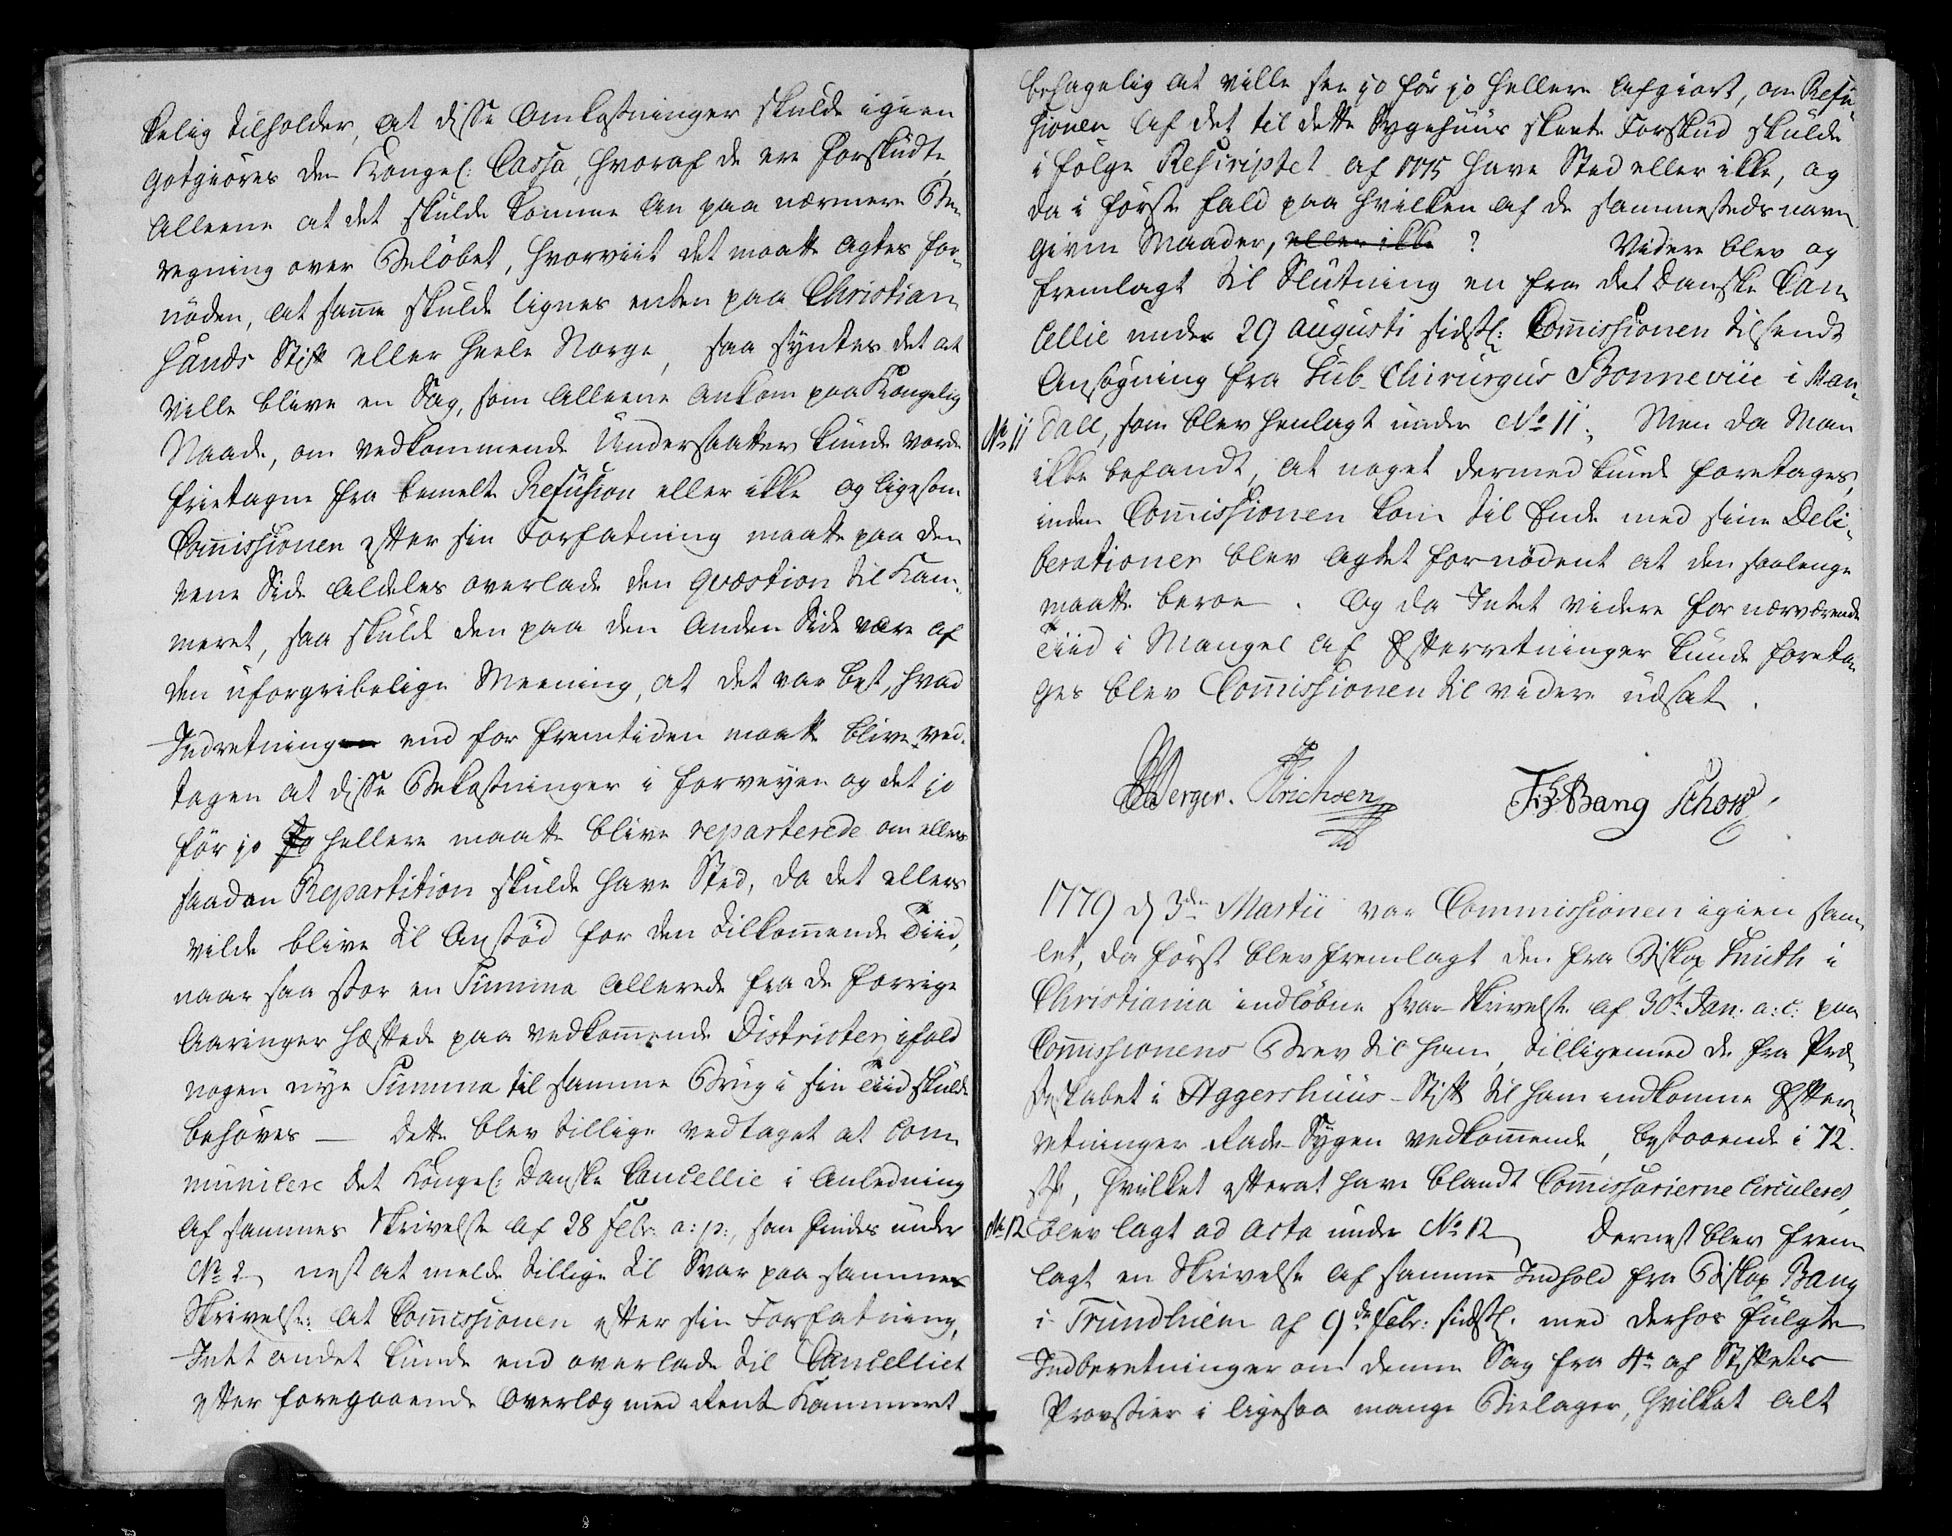 kelig tilholder, at disse Omkostninger skulde igien
gotgiöres den Kongel: Cassa, hvoraf de ere forskudte,
alleene at det skulde komme an paa nærmere Be-
regning over Belöbet, hvorviit det maatte agtes for-
nöden, at samme skulde lignes enten paa Christian-
sands Stift eller heele Norge, saa syntes det at
ville blive en Sag, som alleene ankom paa Kongelig
Naade, om vedkommende Undersaatter kunde vorde
frietagne fra bemelte Refusion eller ikke og ligesom
Com̅issionen efter sin Forfatning maatte paa den
eene Side aldeles overlade den Qvæstion til Kam-
meret, saa skulde den paa den anden Side være af
den uforgribelige Meening, at det var best, hvad
Indretning end for Fremtiden maatte blive ved-
tagen at disse Bekostninger i Forveyen og det jo
för jo hellere maatte blive reparterede om ellers
saadan Repartition skulde have Sted, da det ellers
vilde blive til Anstöd for den tilkom̅ende Tiid,
naar saa stor en Summa allerede fra de forrige
Aaringer hæftede paa vedkom̅ende Districter, ifald
nogen nye Summa til samme Brug i sin Tiid skulde
behöves — dette blev tillige vedtaget at com-
municere det Kongel: Danske Cancellie i Anledning
af sammes Skrivelse af 28 Febr: a: p:, som findes under
No 2, nest at melde tillige til Svar paa sammes
Skrivelse: at Com̅issionen efter sin Forfatning,
Intet andet kunde end overlade til Cancelliet
efter foregaaende Overlæg med Rente Kammeret
behagelig at ville see jo för jo hellere afgiort, om Refu-
sionen af det til dette Sygehuus skeete Forskud skulde
i fölge Rescriptet af 1775 have Sted eller ikke, og
da i förste Fald paa hvilken af de sammesteds navn-
givne Maader, eller ikke ? Videre blev og
fremlagt til Slutning en fra det Danske Can-
cellie under 29 Augusti sidstl: Com̅issionen tilsendt
Ansögning fra Sub-Chirurgus Bonnevie i Man-
No 11 dall, som blev henlagt under No 11. Men da Man
ikke befandt, at noget dermed kunde foretages,
inden Com̅issionen kom til Ende med sine Deli-
berationer blev agtet fornödent at den saalenge
maatte beroe. Og da Intet videre for nærværende
Tiid i Mangel af Efterretninger kunde foreta-
ges blev Com̅issionen til videre udsat.
Berger. Erichsen FC Bang Schow
1779 d 3de Martii var Commissionen igien sam-
let, da först blev fremlagt den fra Biskop Smith i
Christiania indlöbne svar Skrivelse af 30t Jan: a: c: paa
Com̅issionens Brev til ham, tilligemed de fra Præ-
steskabet i Aggershuus-Stift til ham indkomne Efter-
retninger Rade-Sygen vedkom̅ende, bestaaende i 72
st, hvilket efterat have blandt Com̅issarierne circuleret,
No 12 blev lagt ad Acta under No 12, Dernest blev frem-
lagt en Skrivelse af samme Indhold fra Biskop Bang
i Trundhiem af 9de Febr: sidstl: med derhos fulgte
Indberetninger om denne Sag fra 4re af Stiftets
Provstier i ligesaa mange Bielager, hvilket alt